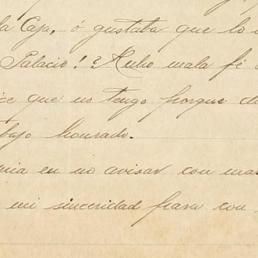 la Caja, ó gustaba que lo
Palacio! ¿Hubo mala fé
que no tengo porque
bajo honrado.
en no avisar con
mi sinceridad para con